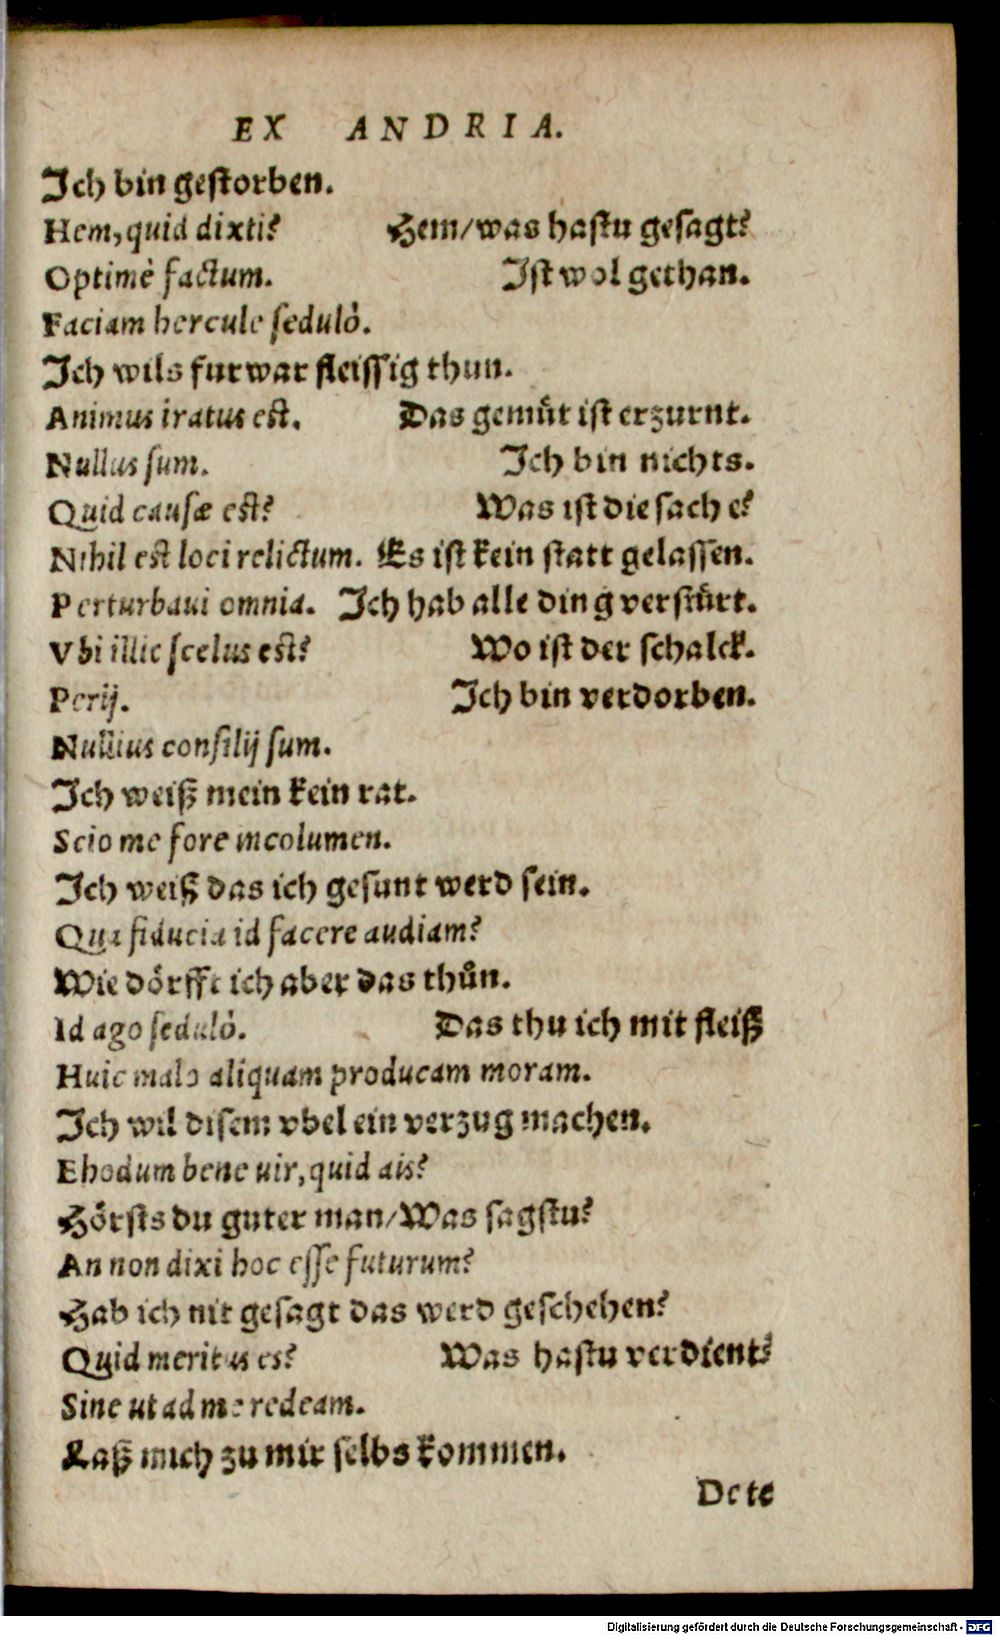 EX ANDRIA.
Ich bin gestorben.
Hem, quid dixti? Hem/was hastu gesagt?
Optimè factum. Ist wol gethan.
Faciam hercule sedulò.
Ich wils furwar fleissig thun.
Animus iratus est. Das gemüt ist erzurnt.
Nullus sum. Ich bin nichts.
Quid causæ est? Was ist die sach e?
Nihil est loci relictum. Es ist kein statt gelassen.
Perturbaui omnia. Ich hab alle ding verstürt.
Vbi illic scelus est? Wo ist der schalck.
Perij. Ich bin verdorben.
Nullius consilij sum.
Ich weiß mein kein rat.
Scio me fore incolumen.
Ich weiß das ich gesunt werd sein.
Qua fiducia id facere audiam?
Wie dörfft ich aber das thůn.
Id ago sedulò. Das thu ich mit fleiß
Huic malo aliquam producam moram.
Ich wil disem vbel ein verzug machen.
Ehodum bene uir, quid ais?
Hörsts du guter man/Was sagstu?
An non dixi hoc esse futurum?
Hab ich nit gesagt das werd geschehen?
Quid meritus es? Was hastu verdient?
Sine ut ad me redeam.
Laß mich zu mir selbs kommen.
De te
Digitalisierung gefördert durch die Deutsche Forschungsgemeinschaft - DFG